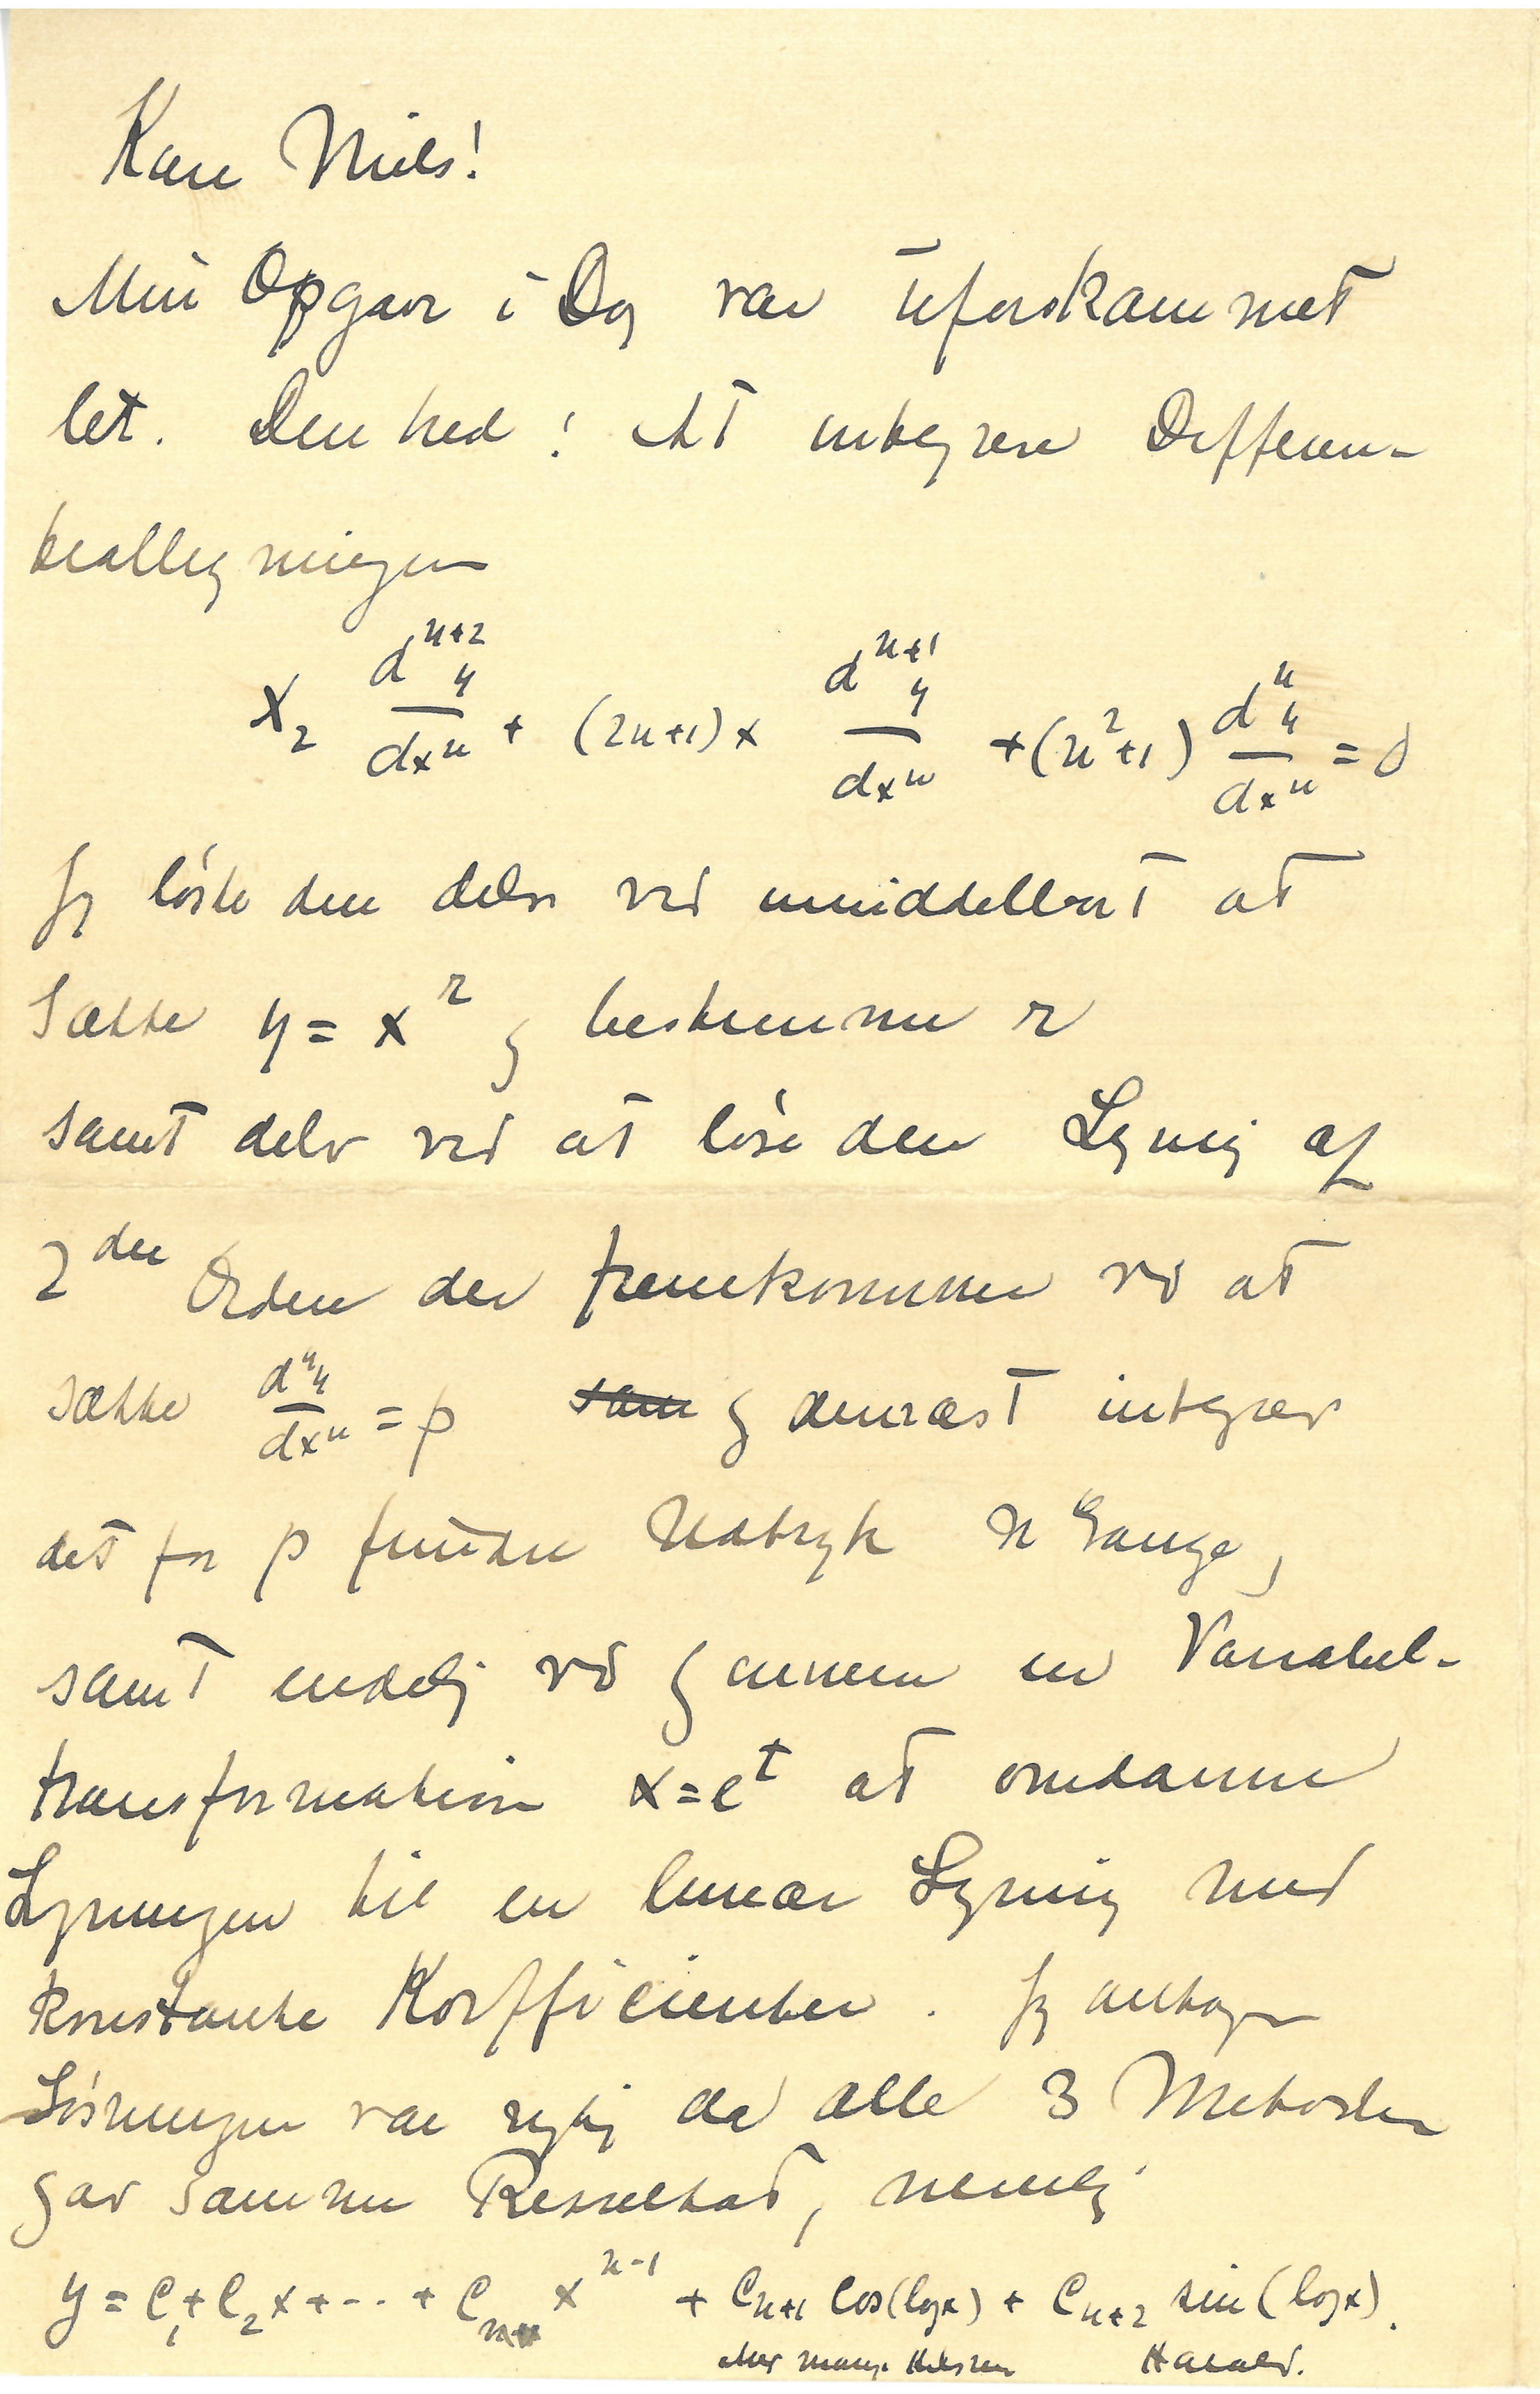 Kære Niels!
Min Opgave i Dag var uforskammet
let. Den hed: At integrere Differen-
tialligningen
x₂ dⁿ⁺²y/dxⁿ + (2n+1)x dⁿ⁺¹y/dxⁿ + (n²+1) dⁿy/dxⁿ = 0
Jeg løste den dels ved umiddelbart at
sætte y = xʳ og bestemme r
samt dels ved at løse den Ligning af
2den Orden der fremkommer ved at
sætte dⁿy/dxⁿ = p som og dernæst integrere
det for p fundne Udtryk n Gange,
samt endelig ved gennem en Variabel-
transformation x=eᵗ at omdanne
Ligningen til en lineær Ligning med
konstante Koefficienter. Jeg antager
Løsningen var rigtig da alle 3 Metoder
gav samme Resultat, nemlig
y = C₁ + C₂x + -·· + Cₙ xⁿ⁻¹ + Cₙ₊₁ cos(logx) + Cₙ₊₂ sin(logx).
Med mange Hilsner Harald.